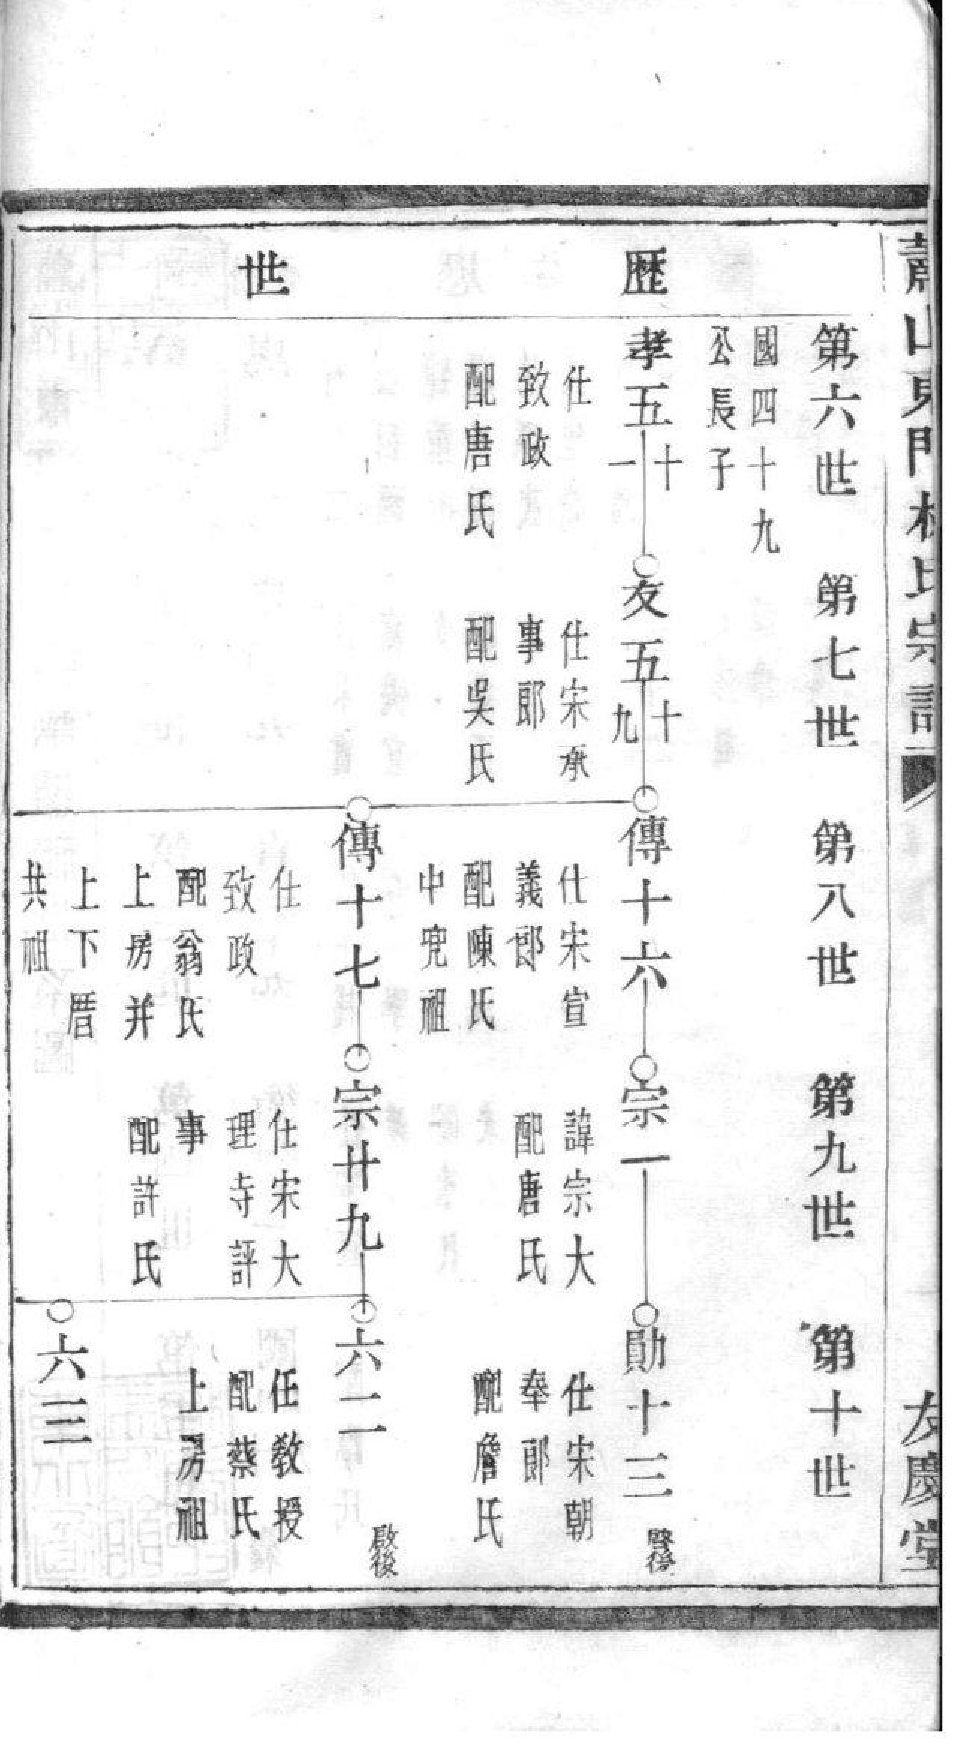 蕭山東門林氏宗譜
友慶堂
歷世
第六世
第七世
第八世
第九世
第十世
國四十九
公長子
孝五十一
仕
致政
配唐氏
友五十九
仕宋承
事郎
配吳氏
傳十六
仕宋宣
義郎
配陳氏
中兜祖
宗一
諱宗大
配唐氏
勛十三
仕宋朝
奉郎
配詹氏
傳十七
仕
致政
配翁氏
上房并
上下厝
共祖
宗廿九
仕宋大
理寺評
事
配許氏
六二
任教授
配蔡氏
上房祖
啟後
六三